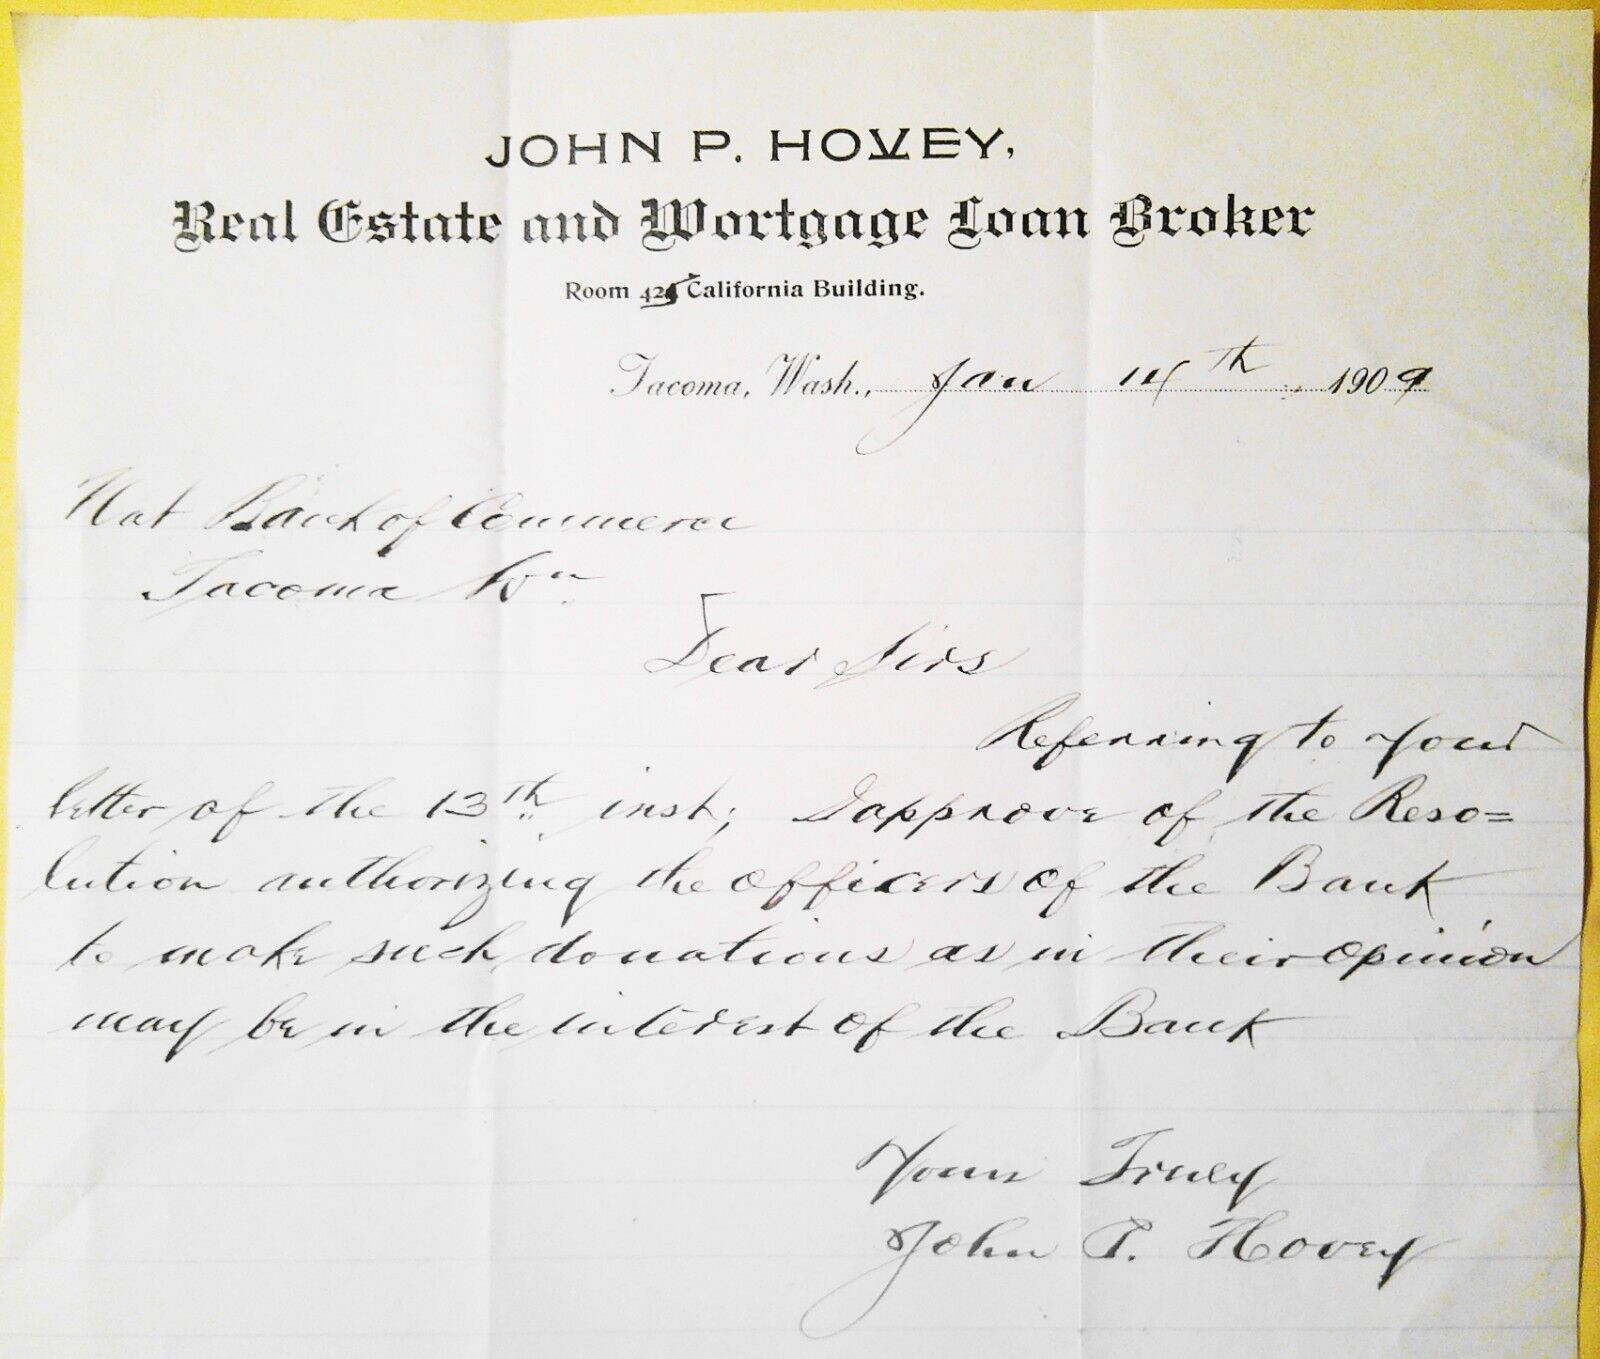 JOHN P. HOVEY,
Real Estate and Mortgage Loan Broker
Room 425 California Building.
Tacoma, Wash., Jan 14th, 1909
Nat Bank of Commerce
Tacoma Wn
Dear Sirs
Referring to your
letter of the 13th inst; I approve of the Reso=
lution authorizing the officers of the Bank
to make such donations as in their opinion
may be in the interest of the Bank
Yours Truly
John P. Hovey